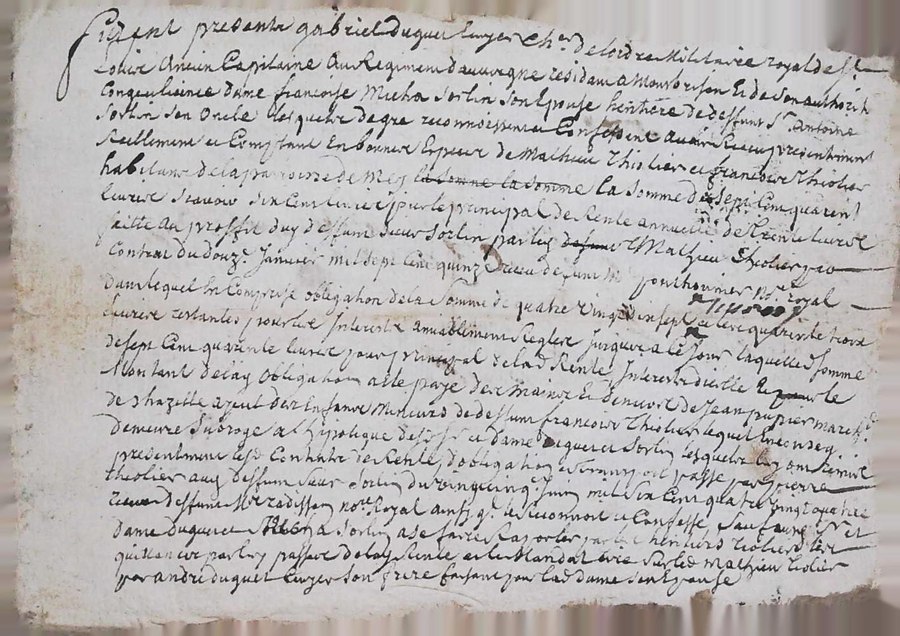 furent presents gabriel duguet Ecuyer Cher. de lordre Militaire royal de St.
Louis Ancien Capitaine Au Regiment dauvergne residant a Montbrison Et de Son authorité
Conge licence dame francoise Micha Sorlin Son Epouse heritiere de deffunt Sr. Antoine
Sorlin Son Oncle lesquels de gré reconnoissent et Confessent avoir Receu presentement
Reellement et Comptant En bonnes Especes de Mathieu Thiolier et francoise Thiolier
habitans de la parroisse de la somme la somme la Somme de Sept Cent quarente
livres Scavoir Six Cent livres pour le principal de Rente annuelle de trente livres
faitte au proffit dud deffunt sieur Sorlin par led Mathieu Thiolier par
Contrat du douze Janvier mil Sept Cent quinze receu deffunt Me ponthonier No.re royal
Dans lequel Est Comprise obligation de la Somme de quatre vingt dix sept et cent quarente
livres restantes pour les Interests amiablement Regles Jusques a ce Jour laquelle somme
de Sept Cent quarente livres pour principal de lad Rente Interests dicelle
Montant de lad Obligation a esté payé des Mains Et deniers de Jean pupier march.d
de Chazelle ayeul des Enfans Mineurs de deffunt francois Thiolier lequel
demeure Subrogé a lhipoteque desd. Sr. et Dame duguet et Sorlin lesquels luy ont Remis
presentement led. Contrat de Rente, dobligation passé par pierre
theolier aud deffunt Sieur Sorlin du vingt cinq Juin mil Six Cent quatre vingt quatre
receu deffunt no.re Royal ainsy quil le Reconnoit et Confesse Sauf auxd. Sr. et
Dame duguet et Micha Sorlin a se faire Raporter par les heritiers tiolier les
quittances par luy passées de lad Rente et le Mandat tiré Sur led mathieu tiolier
par andré duguet Ecuyer Son frere faisant pour lad dame Son Epouse